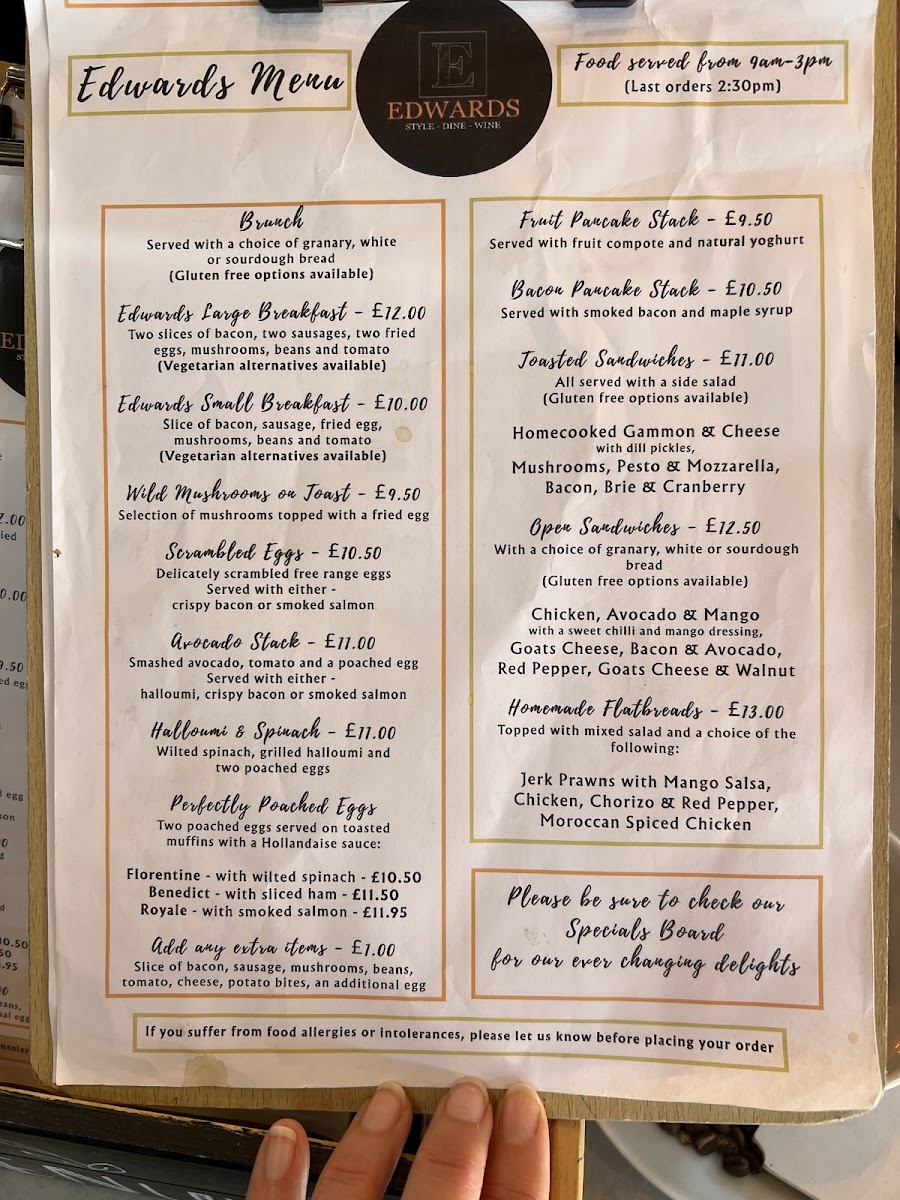 Edwards Menu
E
EDWARDS
STYLE - DINE - WINE
Food served from 9am-3pm
(Last orders 2:30pm)
Brunch
Served with a choice of granary, white
or sourdough bread
(Gluten free options available)
Edwards Large Breakfast - £12.00
Two slices of bacon, two sausages, two fried
eggs, mushrooms, beans and tomato
(Vegetarian alternatives available)
Edwards Small Breakfast - £10.00
Slice of bacon, sausage, fried egg,
mushrooms, beans and tomato
(Vegetarian alternatives available)
Wild Mushrooms on Toast - £9.50
Selection of mushrooms topped with a fried egg
Scrambled Eggs - £10.50
Delicately scrambled free range eggs
Served with either -
crispy bacon or smoked salmon
Avocado Stack - £11.00
Smashed avocado, tomato and a poached egg
Served with either -
halloumi, crispy bacon or smoked salmon
Halloumi & Spinach - £11.00
Wilted spinach, grilled halloumi and
two poached eggs
Perfectly Poached Eggs
Two poached eggs served on toasted
muffins with a Hollandaise sauce:
Florentine - with wilted spinach - £10.50
Benedict - with sliced ham - £11.50
Royale - with smoked salmon - £11.95
Add any extra items - £1.00
Slice of bacon, sausage, mushrooms, beans,
tomato, cheese, potato bites, an additional egg
Fruit Pancake Stack - £9.50
Served with fruit compote and natural yoghurt
Bacon Pancake Stack - £10.50
Served with smoked bacon and maple syrup
Toasted Sandwiches - £11.00
All served with a side salad
(Gluten free options available)
Homecooked Gammon & Cheese
with dill pickles,
Mushrooms, Pesto & Mozzarella,
Bacon, Brie & Cranberry
Open Sandwiches - £12.50
With a choice of granary, white or sourdough
bread
(Gluten free options available)
Chicken, Avocado & Mango
with a sweet chilli and mango dressing,
Goats Cheese, Bacon & Avocado,
Red Pepper, Goats Cheese & Walnut
Homemade Flatbreads - £13.00
Topped with mixed salad and a choice of the
following:
Jerk Prawns with Mango Salsa,
Chicken, Chorizo & Red Pepper,
Moroccan Spiced Chicken
Please be sure to check our
Specials Board
for our ever changing delights
If you suffer from food allergies or intolerances, please let us know before placing your order